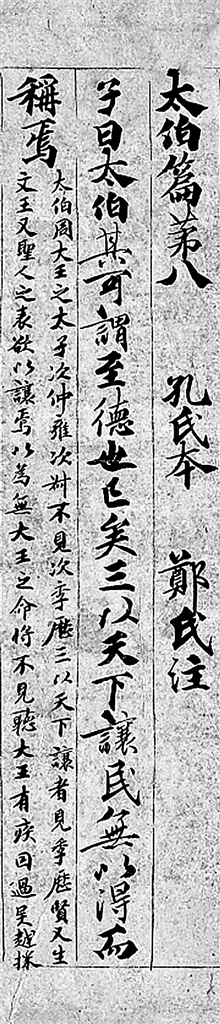 太伯篇第八 孔氏本 鄭氏注
子曰太伯其可謂至德也已矣三以天下讓民無以得而
稱焉
太伯周大王之太子次仲雍次叔不見次季歷三以天下讓者見季歷賢又生
文王又聖人之表欲以讓焉以為無大王之命將不見聽大王有疾因過吳越採